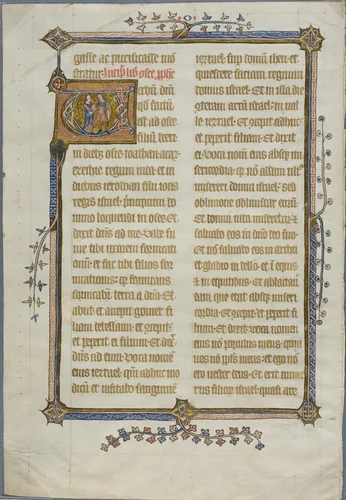 gasse ac purificasse mō
stratur. Incip̄ lib̄ osee ꝓphe
erbū dn̄i
qd̄ factū
est ad osee
filiū beeri
in dieb; ozie ioathan achaz
ezechie regum iuda et in
diebus ieroboam filii ioas
regis israel. Principium do
mino loquendi in osee. Et
dixit dn̄s ad osee. Vade su
me tibi uxorem fornicati
onum. et fac tibi filios for
nicationis: qz fornicans
fornicabit terra a dn̄o. Et
abiit et accepit gomer fi
liam debelaim. et concepit
et peperit ei filium. Et dix
dn̄s ad eum. Voca nomen
eius iezrael. qm̄ adhuc mo
dicū et uisitabo sanguinē
iezrael sup domū iheu. et
quiescere faciam regnum
domus israel. Et in illa die
conteram arcū israel in ual
le iezrael. Et concepit adhuc
et peperit filiam. Et dixit
ei. Voca nom̄ eius absq; mi
sericordia. qz non addam ultra
misereri domui israel. sed
obliuione obliuiscar eorū.
Et domui iuda miserebor. &
saluabo eos in dn̄o deo suo.
Et non saluabo eos in archu
et gladio in bello. et ī equis
& in equitibus. Et ablactauit
eam que erat absq; miseri
cordia. Et concepit et peperit fi
lium. Et dixit. Voca nomen
eius non populus meus. quia
uos non ppl̄s meus. et ego non
ero uester deus. Et erit nume
rus filiorum israel. quasi are